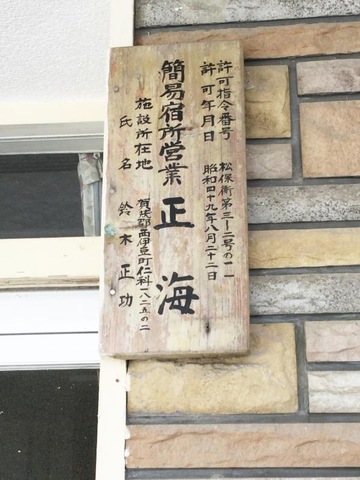 許可指令番号 松保衛第三ー二号の一一
許可年月日 昭和四十九年八月二十二日
簡易宿所営業 正海
施設所在地 賀茂郡西伊豆町仁科一八二五の二
氏名 鈴木正功